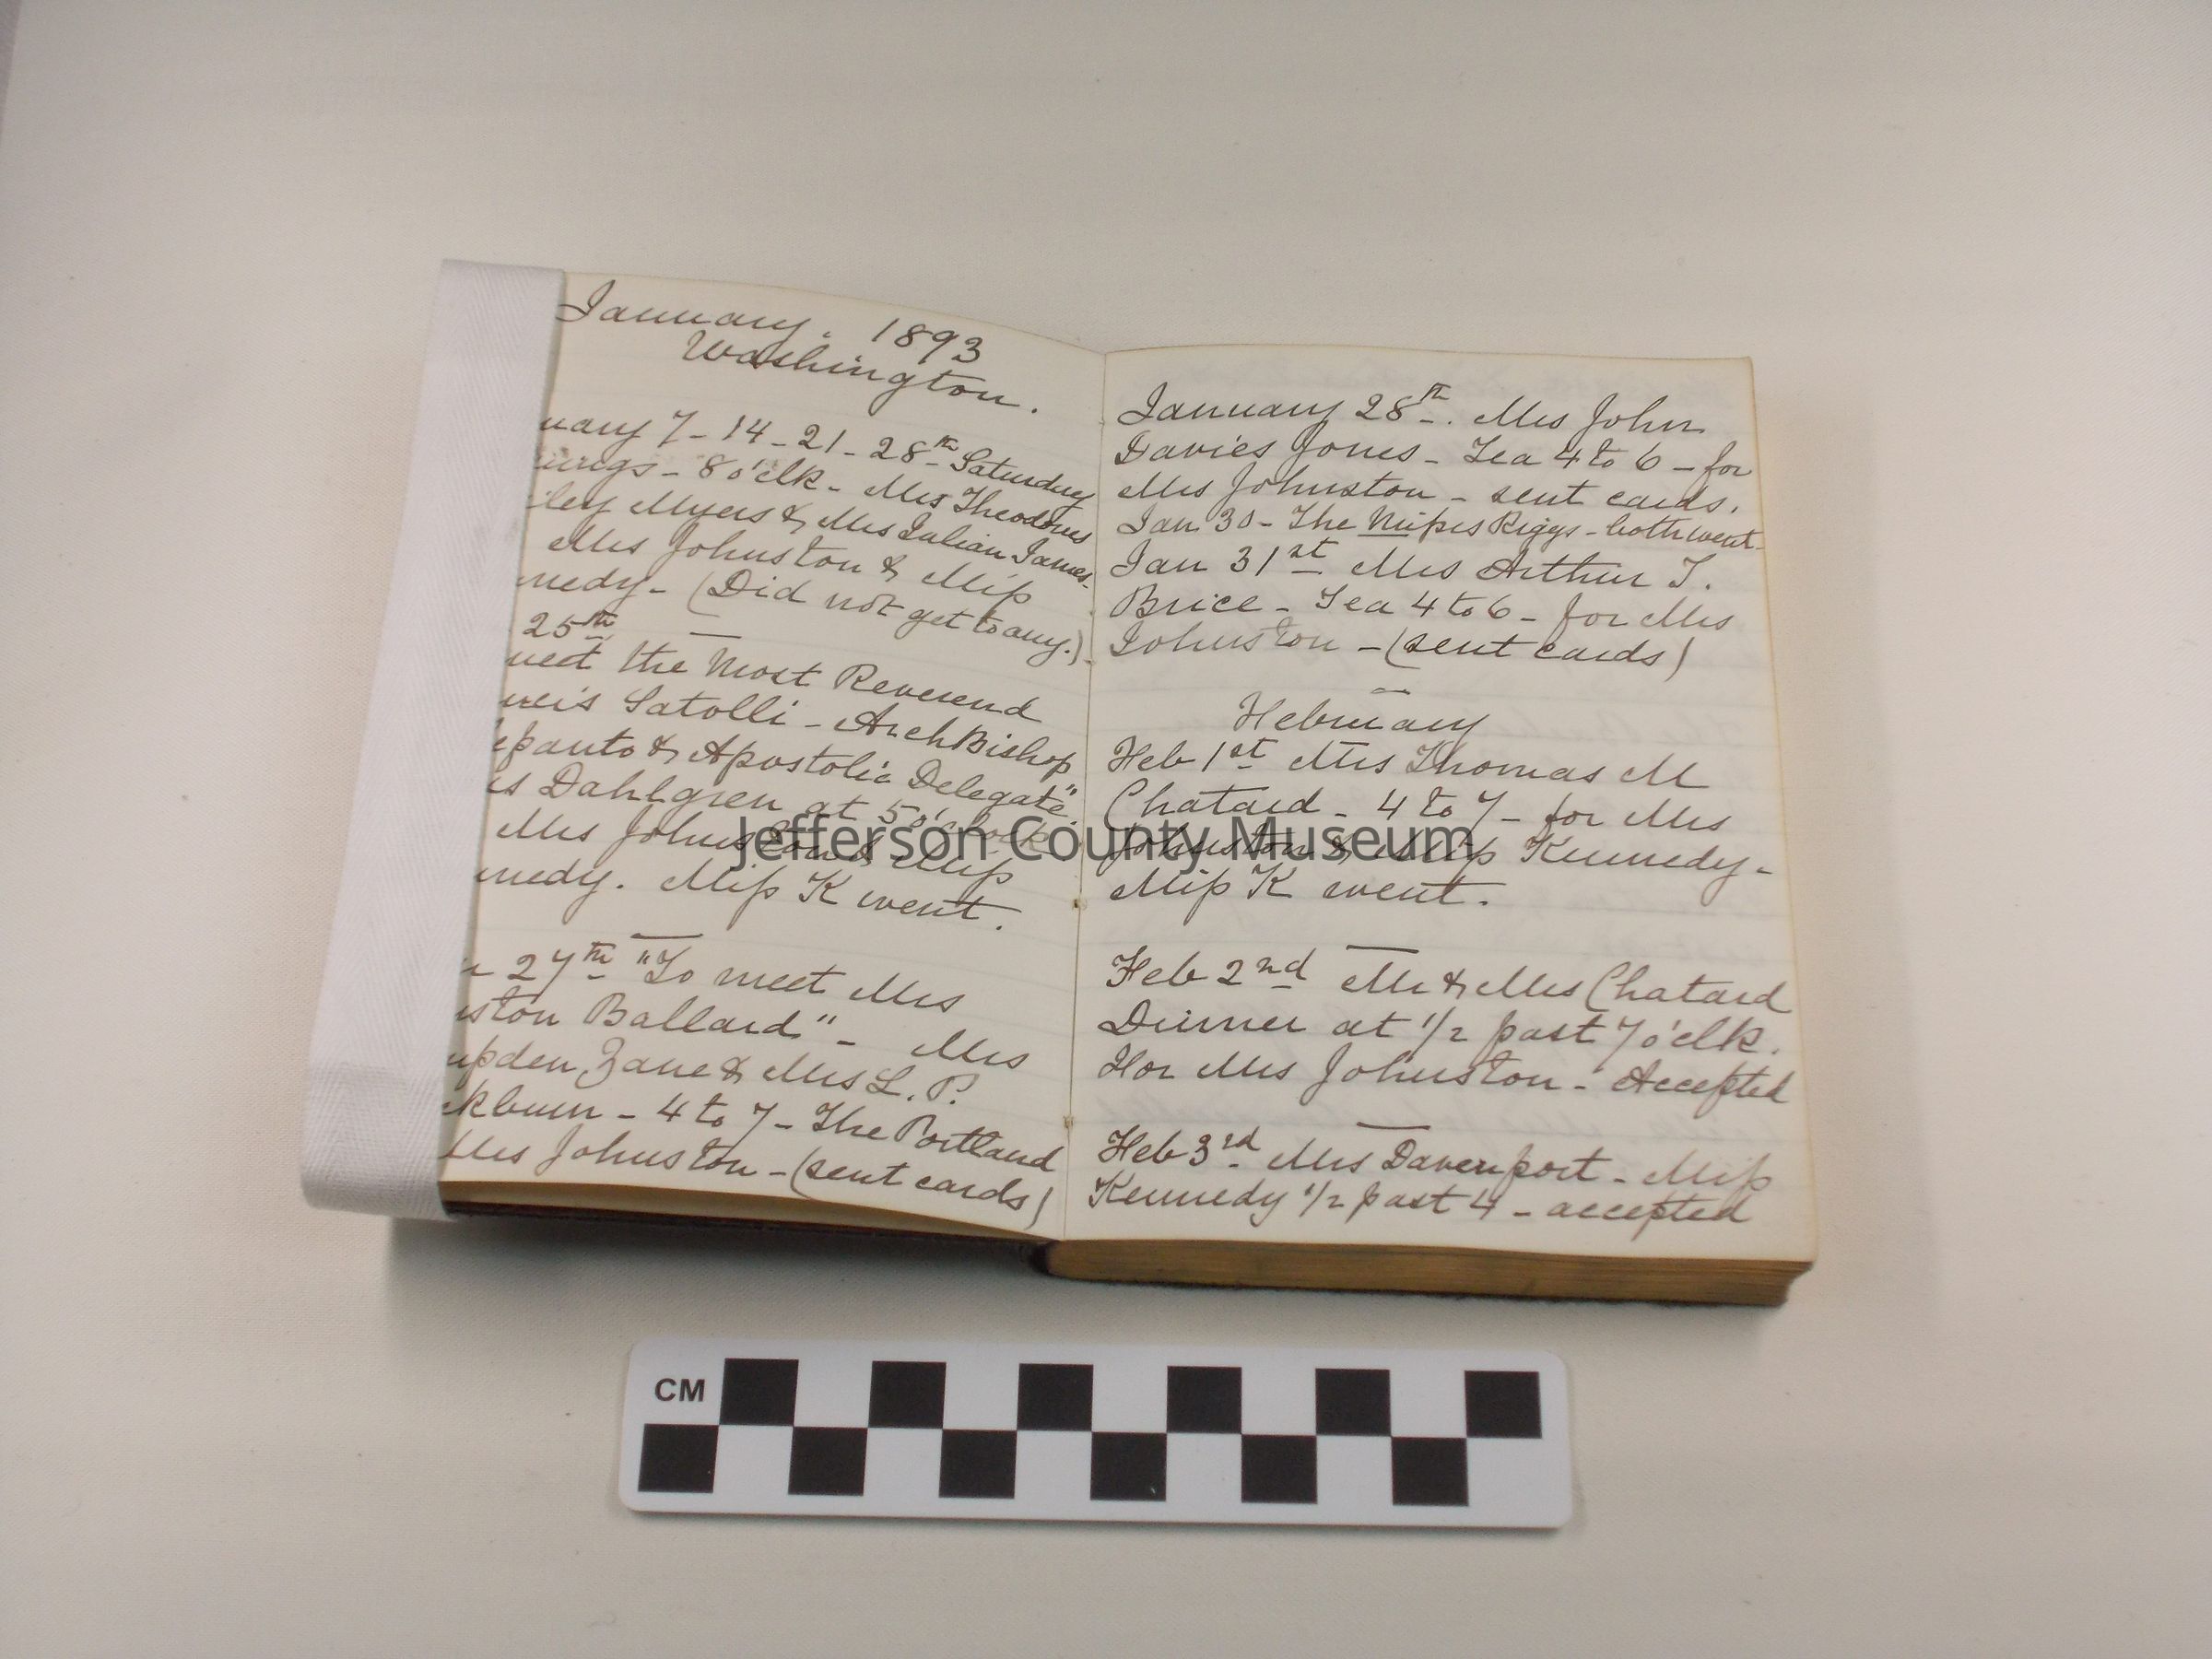 January. 1893
Washington.
uary 7 - 14 - 21 - 28th Saturday
- 8 o'clk - Mrs Theodorus
ley Myers & Mrs Julian James.
Mrs Johnston & Miss
nedy - (Did not get to any.)
25th
meet the Most Reverend
Satolli - ArchBishop
epanto & Apostolic Delegate"
s Dahlgren at 5 o'clock
Mrs Johnston & Miss
nnedy. Miss K went.
27th "To meet Mrs
ston Ballard" - Mrs
mpden Zane & Mrs L. P.
ckburn - 4 to 7 - The Portland
Mrs Johnston - (sent cards)
January 28th. Mrs John
Davies Jones - Tea 4 to 6 - for
Mrs Johnston - sent cards.
Jan 30 - The Misses Riggs - both went -
Jan 31st Mrs Arthur T.
Brice - Tea 4 to 6 - for Mrs
Johnston - (sent cards)
February
Feb 1st Mrs Thomas M
Chatard - 4 to 7 - for Mrs
Johnston & Miss Kennedy -
Miss K went.
Feb 2nd Mr & Mrs Chatard
Dinner at 1/2 past 7 o'clk.
For Mrs Johnston - Accepted
Feb 3rd. Mrs Davenport - Miss
Kennedy 1/2 past 4 - accepted
Jefferson County Museum
CM